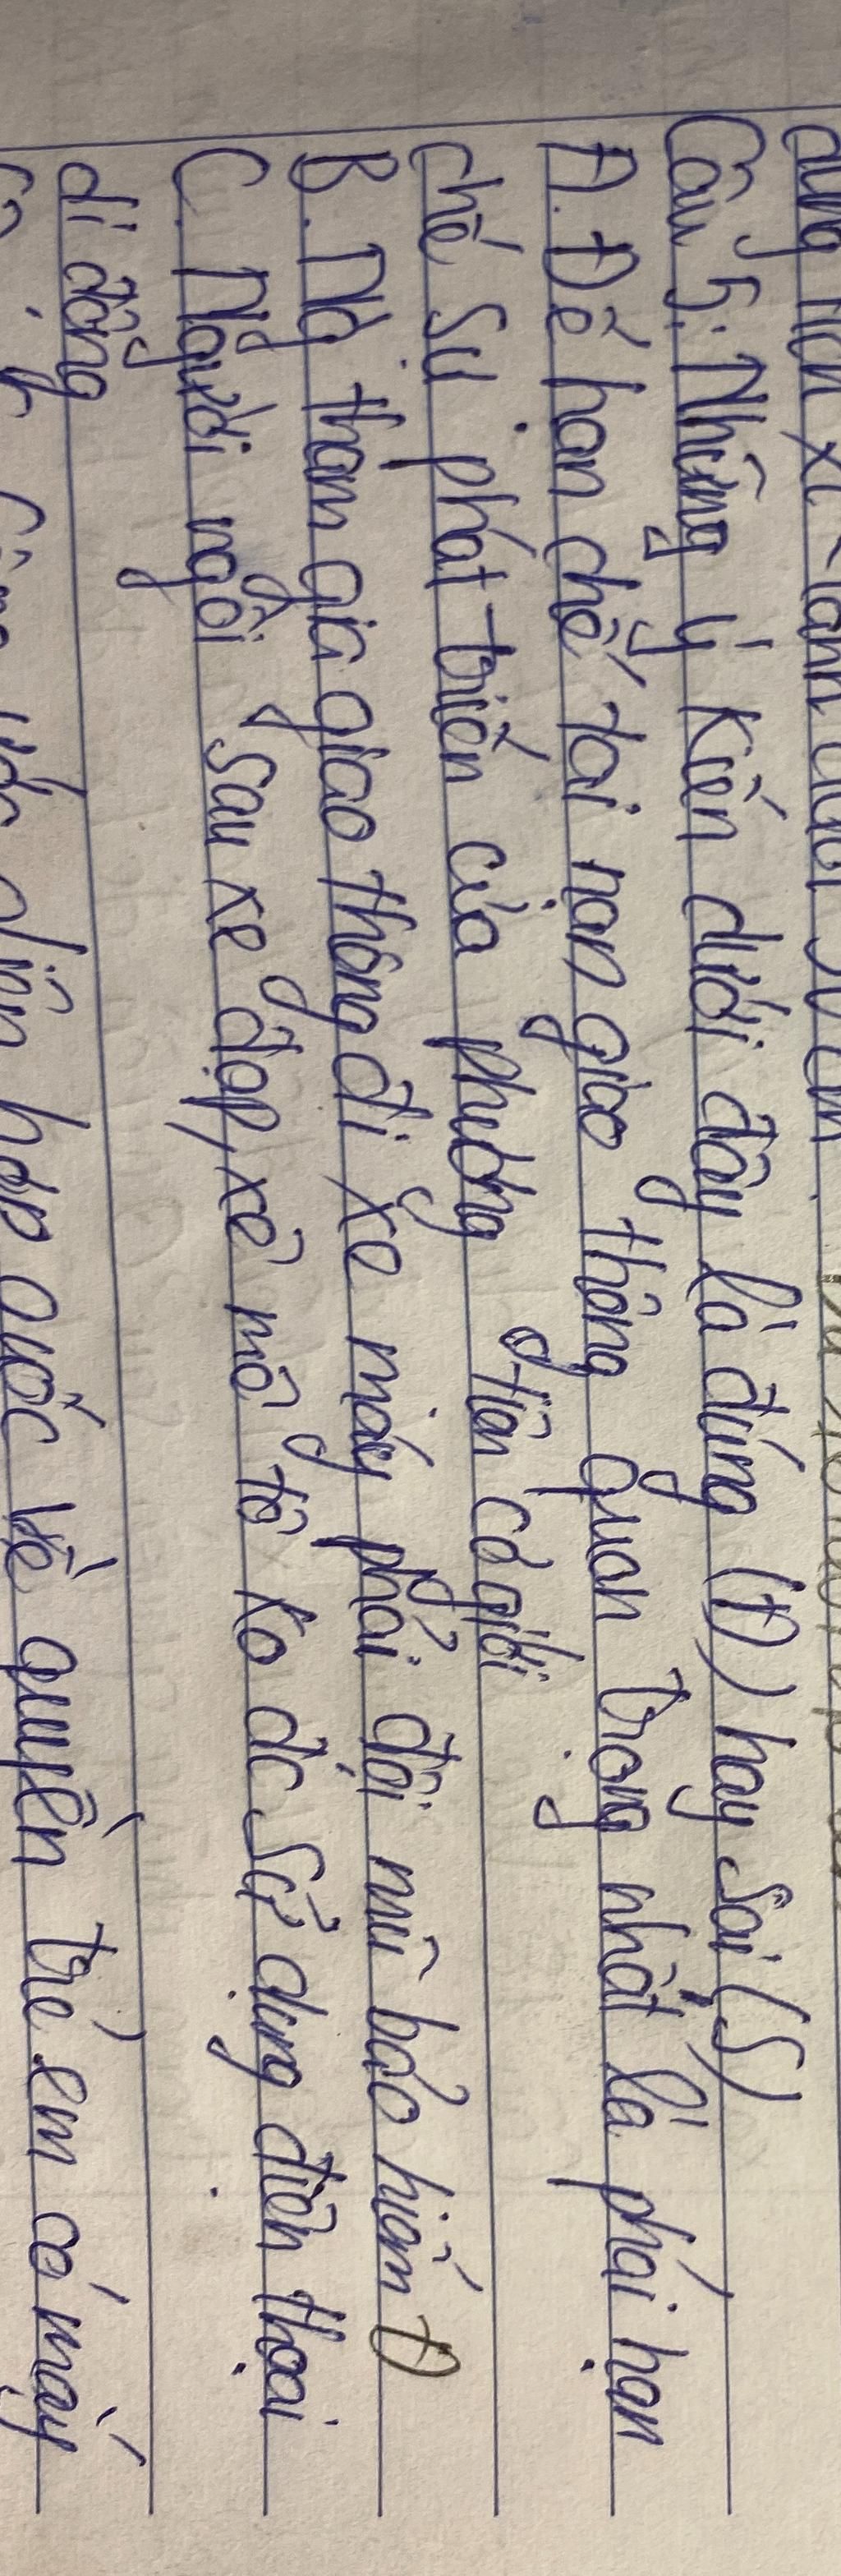 Câu 5: Những ý kiến dưới đây là đúng (Đ) hay sai (S)
A. Để hạn chế tai nạn giao thông quan trọng nhất là phải hạn
chế sự phát triển của phương tiện cơ giới.
B. Ng tham gia giao thông đi xe máy phải đội mũ bảo hiểm Đ
C. Người ngồi sau xe đạp, xe mô tô ko đc sử dụng điện thoại
di động
liên hợp quốc về quyền trẻ em có mấy